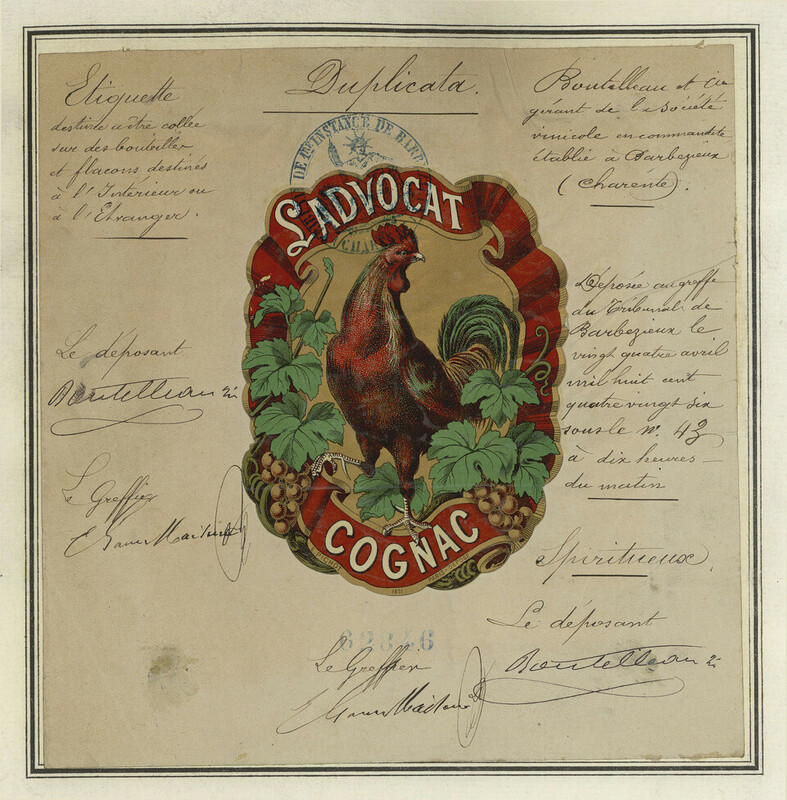 Duplicata.
Etiquette
destinée à être collée
sur des bouteilles
et flacons destinés
à l'Intérieur ou
à l'Etranger.
Boutelleau et Cie
gérant de la Société
vinicole en commandite
établie à Barbezieux
(Charente).
DE 1ere INSTANCE DE BARB
CHAR
LADVOCAT
COGNAC
Déposée au greffe
du Tribunal de
Barbezieux le
vingt quatre avril
mil huit cent
quatre vingt six
sous le nº. 43
à dix heures
du matin
Spiritueux.
Le déposant
Boutelleau
Le Greffier
62846
Le Greffier
Le déposant
Boutelleau